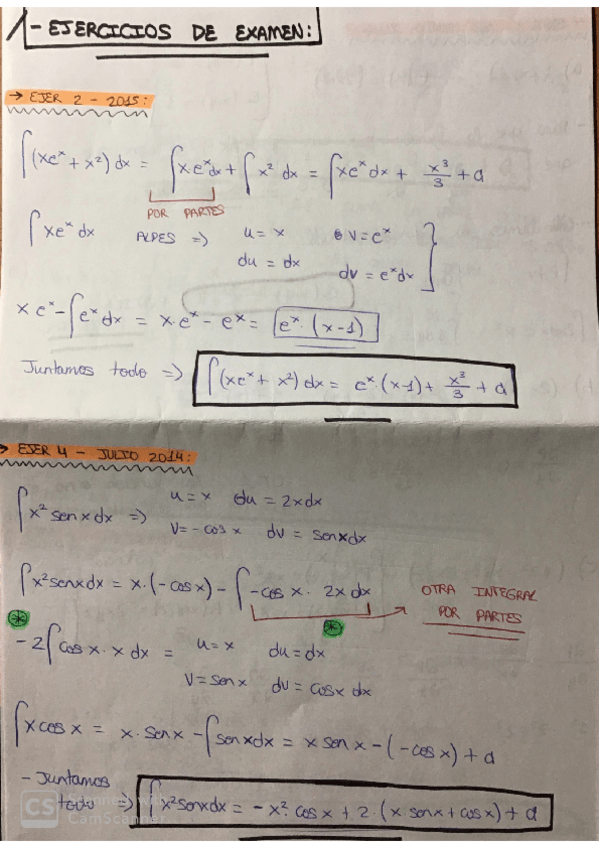 1 - EJERCICIOS DE EXAMEN:
→ EJER 2 - 2015:
∫(xeˣ + x²) dx = ∫xeˣdx + ∫x² dx = ∫xeˣdx + x³/3 + a
POR PARTES
∫xeˣ dx ALPES => u = x v = eˣ
du = dx dv = eˣdx
xeˣ - ∫eˣdx = x·eˣ - eˣ = eˣ·(x-1)
Juntamos todo => ∫(xeˣ + x²) dx = eˣ·(x-1) + x³/3 + a
→ EJER 4 - JULIO 2014:
∫x² senxdx => u = x du = 2xdx
v = -cosx dv = senxdx
∫x²senxdx = x·(-cosx) - ∫-cosx · 2xdx
OTRA INTEGRAL
POR PARTES
* *
-2∫cosx·x dx = u = x du = dx
v = senx dv = cosx dx
∫xcosx = x·senx - ∫senxdx = x senx - (-cosx) + a
- Juntamos
todo => ∫x²senxdx = -x²·cosx + 2·(x·senx + cosx) + a
CS
CamScanner